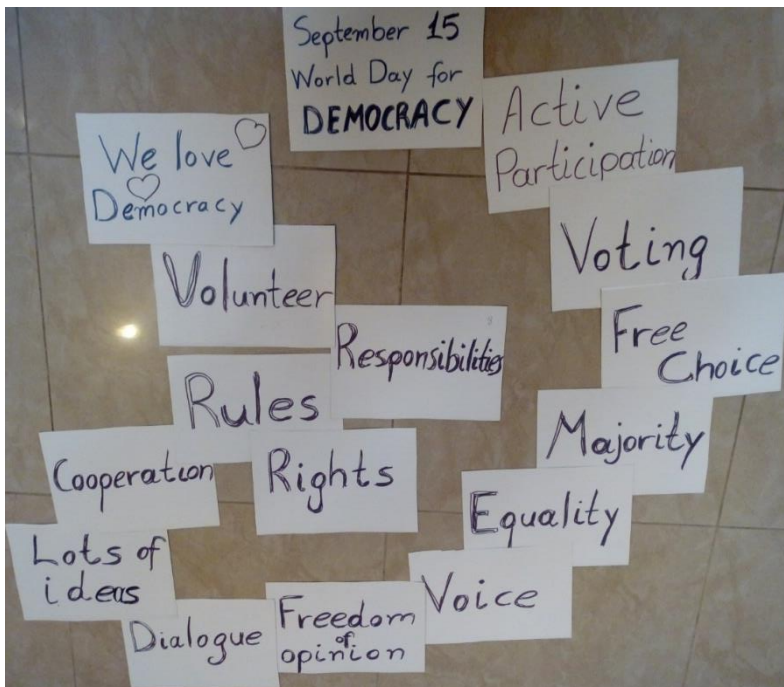 September 15
World Day for
DEMOCRACY
We love
Democracy
Active
Participation
Volunteer
Voting
Responsibilities
Free
Choice
Rules
Majority
Cooperation
Rights
Equality
Lots of
ideas
Voice
Dialogue
Freedom
of
opinion